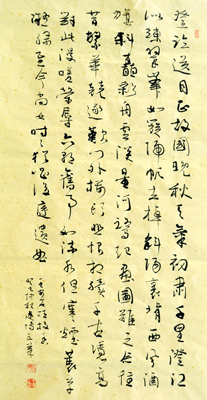 登臨送目正故國晚秋天氣初肅千里澄江
似練翠峰如簇歸帆去棹斜陽裏背西風酒
旗斜矗彩舟雲淡星河鷺起畫圖難足念往
昔繁華競逐歎門外樓頭悲恨相續千古憑高
對此謾嗟榮辱六朝舊事如流水但寒煙衰草
凝綠至今商女時時猶唱後庭遺曲